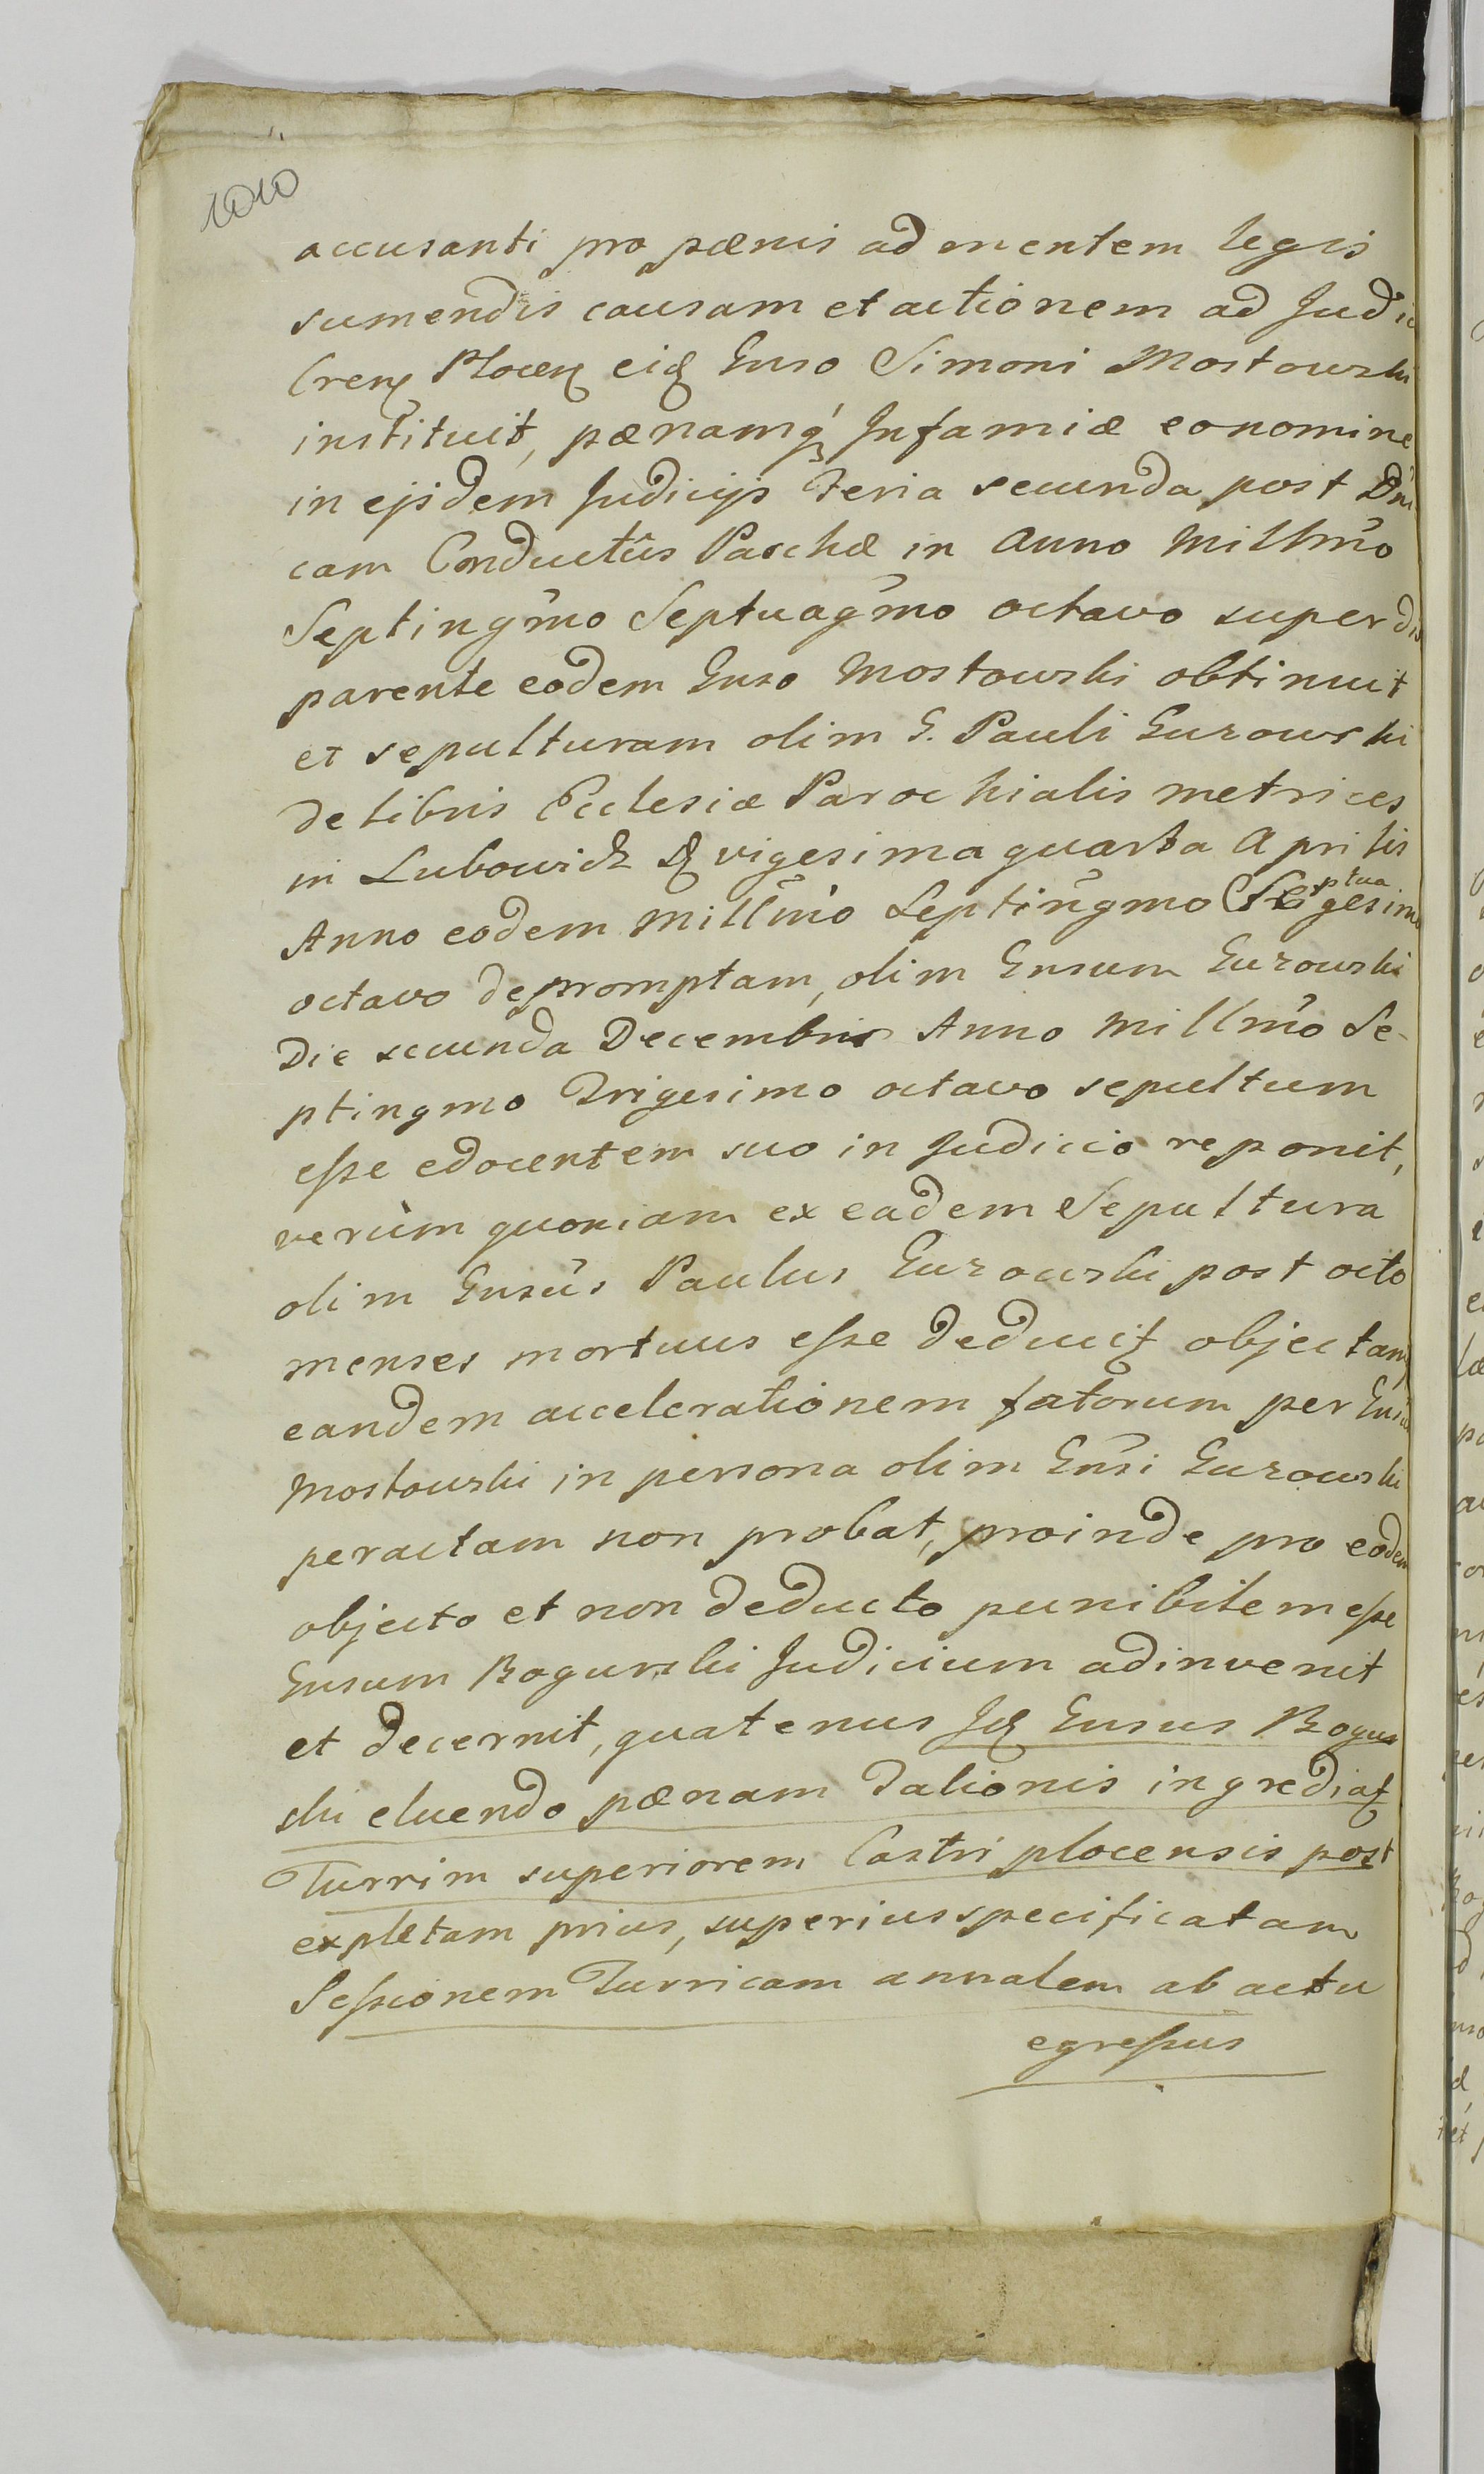 1010
accusanti pro pænis ad mentem legis
sumendis causam et actionem ad Judic
Cren Plocen eid Gnso Simoni Mostowski
instituit, pænamq́ Infamiæ eo nomine
in ejsdem Judicijs Feria secunda post Dni
cam Conductûs Paschæ in Anno Millm̃o
Septingm̃o Septuagm̃o octavo super dis
parente eodem Gnso Mostowski obtinuit
et sepulturam olim G. Pauli Gurowski
de libris Ecclesiæ Parochialis metrices
in Lubowidz D vigesima quarta Aprilis
Anno eodem Millm̃o Septing̃mo Septuagesimo
octavo depromptam, olim Gnsum Gurowski
Die secunda Decembris Anno Millm̃o Se-
ptingmo Trigesimo octavo sepultum
esse edocentem suo in Judicio reponit,
verùm quoniam ex eadem Sepultura
olim Gnsũs Paulus Gurowski post octo
menses mortuus esse deducit objectam
eandem accelerationem fatorum per Gnsu
Mostowski in persona olim Gñsi Gurowski
peractam non probat, proinde pro eodem
objecto et non deducto punibilem esse
Gnsum Bogurski Judicium adinvenit
et decernit, quatenus Id Gnsus Bogur
ski eluendo pænam Talionis ingrediat
Turrim superiorem Castri plocensis post
expletam prius, superius specificatam
Sessionem Turricam annalem ab actu
egressus